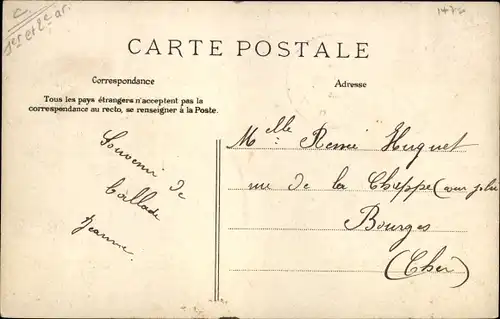 1er et 2e ar.
CARTE POSTALE
Correspondance
Tous les pays étrangers n'acceptent pas la
correspondance au recto, se renseigner à la Poste.
Souvenir
de
Jeanne.
Adresse
Melle Renée Huguet
rue de la Chappe (
Bourges
(Cher)